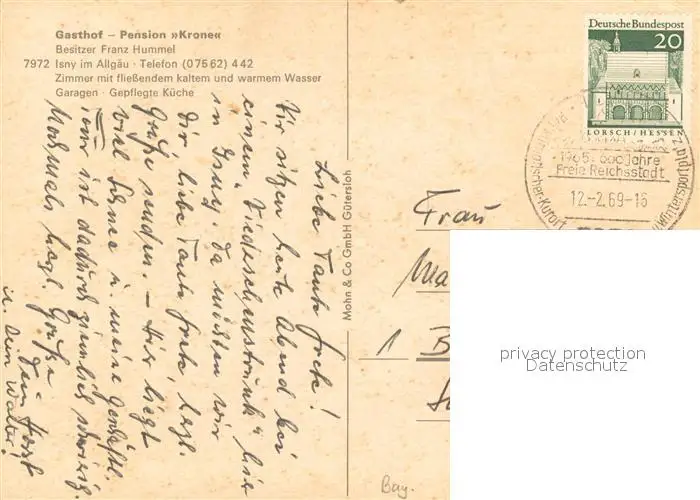 Gasthof – Pension »Krone«
Besitzer Franz Hummel
7972 Isny im Allgäu · Telefon (07562) 442
Zimmer mit fließendem kaltem und warmem Wasser
Garagen · Gepflegte Küche
Liebe Tante Grete!
Wir sitzen heute Abend bei
einem „ hier
in Isny. Da möchten wir
Dir, liebe Tante Grete, herzl.
Grüße senden. – Hier liegt
viel Schnee u. meine Geschäftl.
Tour ist dadurch ziemlich schwierig.
Nochmals herzl. Grüße
Dein Horst
u. Dein Walter!
Mohn & Co GmbH Gütersloh
Deutsche Bundespost
20
LORSCH/HESSEN
1965: 600 Jahre
Freie Reichsstadt
12.-2.69-16
Frau
Ma
1 B
Bay.
privacy protection
Datenschutz